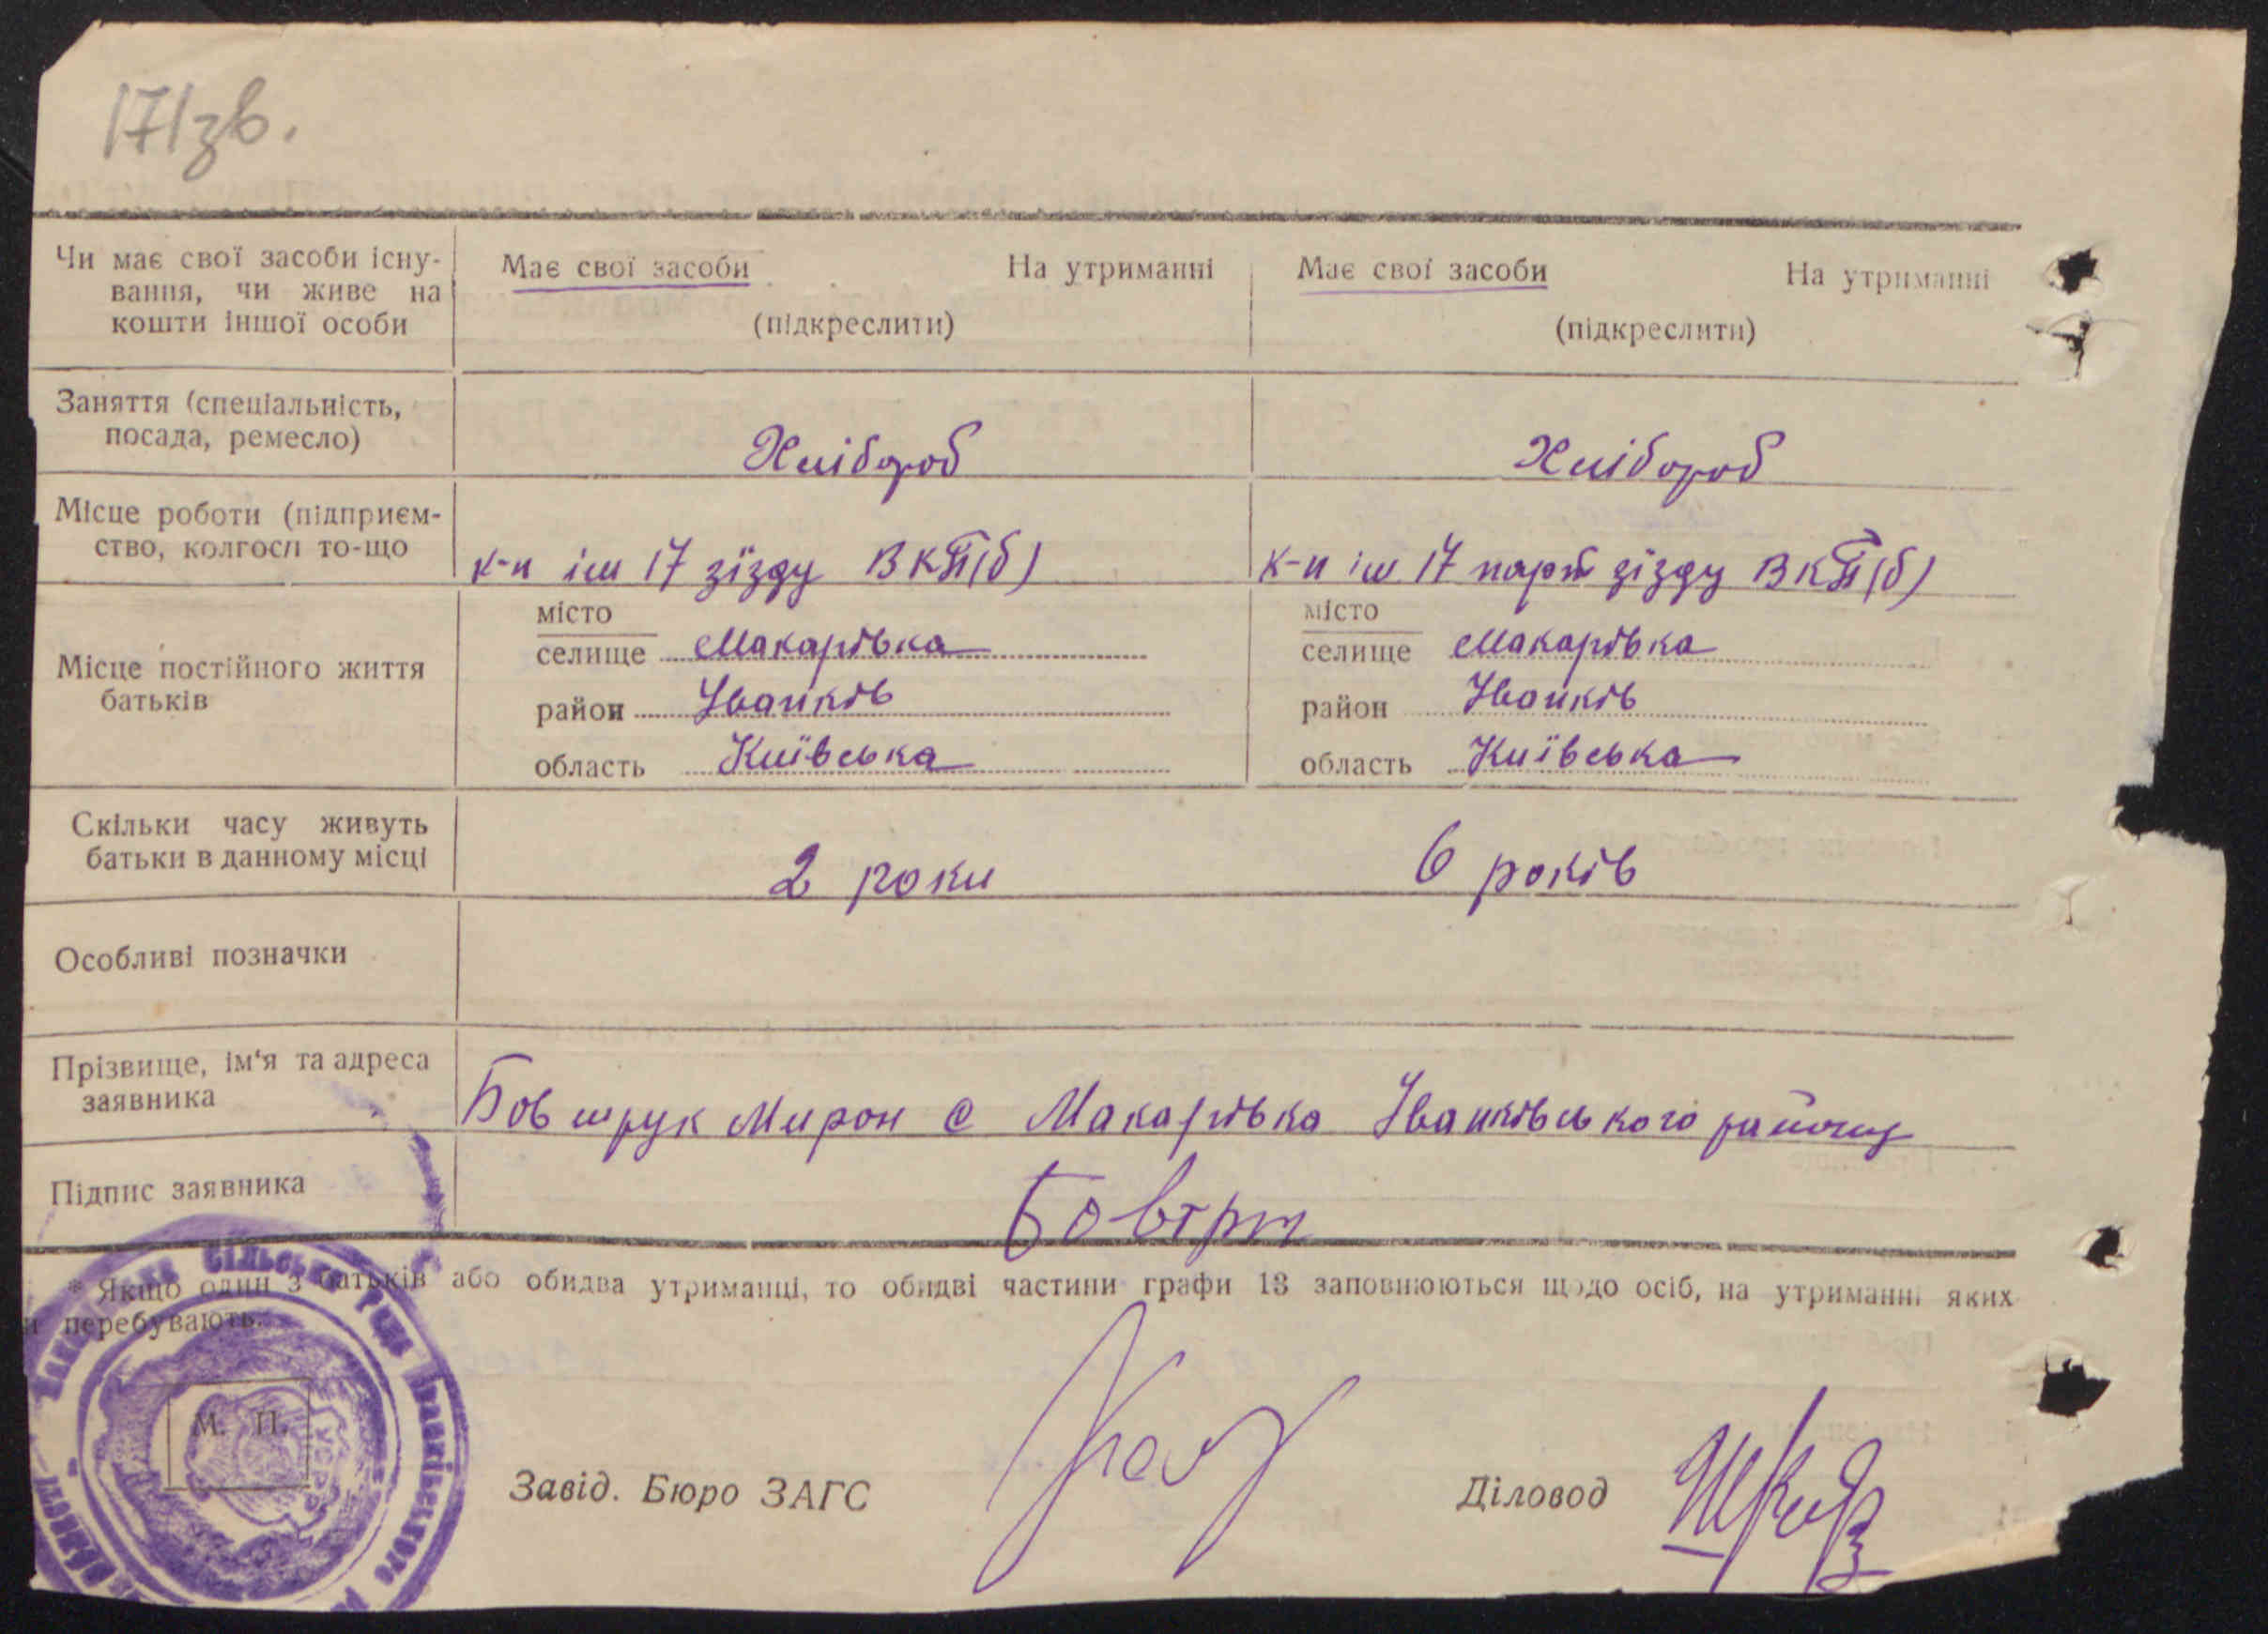 171зв.
Чи має свої засоби існу-
вання, чи живе на
кошти іншої особи
Має свої засоби На утриманні
(підкреслити)
Має свої засоби На утриманні
(підкреслити)
Заняття (спеціальність,
посада, ремесло)
Хлібороб
Хлібороб
Місце роботи (підприєм-
ство, колгосп то-що
к-п ім 17 зїзду ВКП(б)
к-п ім 17 парт зїзду ВКП(б)
Місце постійного життя
батьків
місто
селище Макарівка
район Іванків
область Київська
місто
селище Макарівка
район Іванків
область Київська
Скільки часу живуть
батьки в данному місці
2 роки
6 років
Особливі позначки
Прізвище, ім'я та адреса
заявника
Бовшрук Мирон с Макарівка Іванківського району
Підпис заявника
* Якщо один з батьків або обидва утриманці, то обидві частини графи 13 заповнюються щодо осіб, на утриманні яких
и перебувають.
сільська рада Іванківського
УСРР
М. П.
Завід. Бюро ЗАГС
Діловод